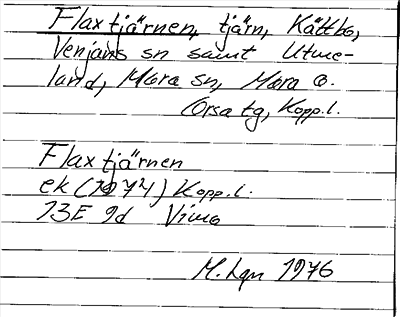 Flaxtjärnen, tjärn, Kättbo,
Venjans sn samt Utme-
land, Mora sn, Mora o.
Orsa tg, Kopp.l.
Flaxtjärnen
ek (1974) Kopp.l.
13E 9d Vimo
M. Lgn 1976